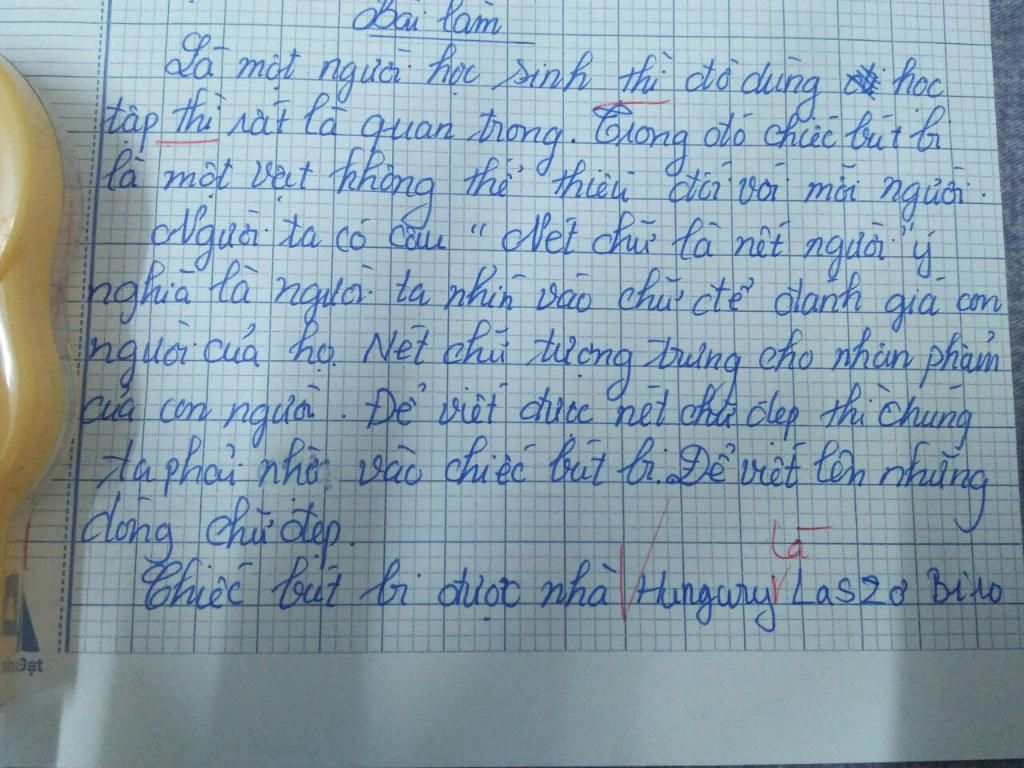 Bài làm
Là một người học sinh thì đồ dùng học
tập thì rất là quan trọng. Trong đó chiếc bút bi
là một vật không thể thiếu đối với mỗi người.
Người ta có câu "Nét chữ là nết người" ý
nghĩa là người ta nhìn vào chữ để đánh giá con
người của họ. Nét chữ tượng trưng cho nhân phẩm
của con người. Để viết được nét chữ đẹp thì chúng
ta phải nhờ vào chiếc bút bi. Để viết lên những
dòng chữ đẹp.
là
Chiếc bút bi được nhà Hungary Laszo Biro
Đạt